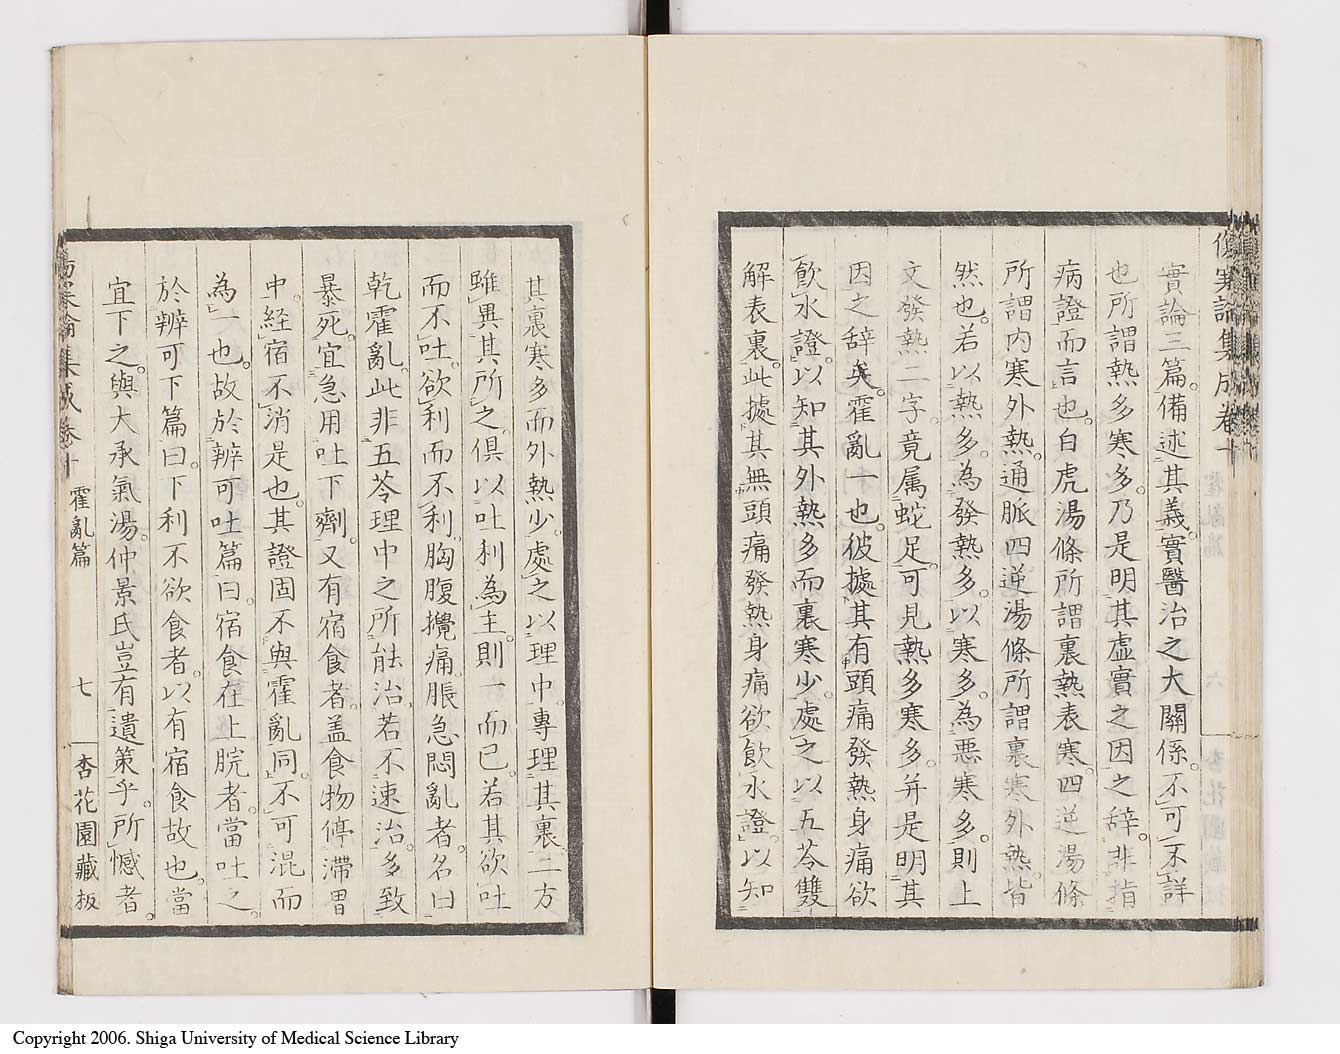 傷寒論集成卷十
實論三篇。備述其義。實醫治之大關係。不可不詳
也所謂熱多寒多。乃是明其虛實之因之辭。非指
病證而言也。白虎湯條所謂裏熱表寒。四逆湯條
所謂內寒外熱。通脈四逆湯條所謂裏寒外熱。皆
然也。若以熱多。為發熱多。以寒多。為惡寒多。則上
文發熱二字。竟属蛇足。可見熱多寒多。并是明其
因之辞矣。霍亂一也。彼據其有頭痛發熱身痛欲
飲水證。以知其外熱多而裏寒少。處之以五苓雙
解表裏。此據其無頭痛發熱身痛欲飲水證。以知
其裏寒多而外熱少。處之以理中專理其裏。二方
雖異其所之。俱以吐利為主。則一而已。若其欲吐
而不吐。欲利而不利。胸腹攪痛。脹急悶亂者。名曰
乾霍亂。此非五苓理中之所能治。若不速治。多致
暴死。宜急用吐下劑。又有宿食者。盖食物停滯胃
中。経宿不消是也。其證固不與霍亂同。不可混而
為一也。故於辨可吐篇曰。宿食在上脘者。當吐之。
於辨可下篇曰。下利不欲食者。以有宿食故也。當
宜下之。與大承氣湯。仲景氏豈有遺策乎。所憾者。
傷寒論集成卷十 霍亂篇 七 杏花園藏板
Copyright 2006. Shiga University of Medical Science Library